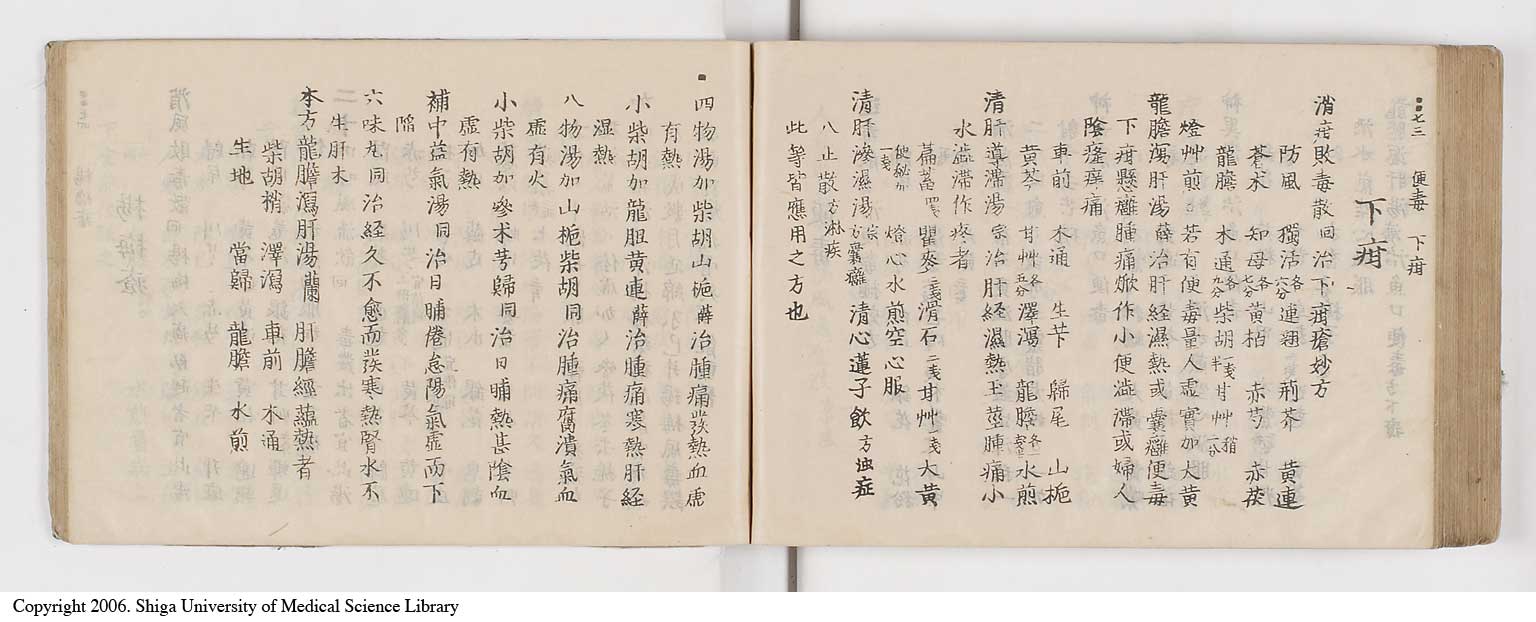 七三 便毒 下疳
下疳
消疳敗毒散回治下疳瘡妙方
防風 獨活各六分連翹 荊芥 黄連
蒼朮 知母各七分黄栢 赤芍 赤茯
龍膽 木通各九分柴胡一戔半甘艸稍一分
燈艸煎 若有便毒量人虚實加大黄
龍膽瀉肝湯薛治肝経濕熱或囊癰便毒
下疳懸癰腫痛焮作小便澁滯或婦人
陰㿉痒痛
車前 木通 生芐 歸尾 山梔
黄芩 甘艸各五分澤瀉 龍膽各二水煎
清肝導滯湯宗治肝経濕熱玉莖腫痛小
水澁滯作疼者
萹蓄四戔瞿麥三戔滑石二戔甘艸一戔大黄
便秘加一戔 燈心水煎空心服
清肝滲濕湯宗方囊癰 清心蓮子飲方血症
八正散方淋疾
此等皆應用之方也
四物湯加柴胡山梔薛治腫痛發熱血虚
有熱
小柴胡加龍胆黄連薛治腫痛寒熱肝経
湿熱
八物湯加山梔柴胡同治腫痛腐潰氣血
虚有火
小柴胡加參朮芎歸同治日晡熱甚陰血
虚有熱
補中益氣湯同治日晡倦怠陽氣虚而下
陷
六味丸同治経久不愈而發寒熱腎水不
生肝木
本方龍膽瀉肝湯蘭 肝膽經蘊熱者
柴胡稍 澤瀉 車前 木通
生地 當歸 龍膽 水煎